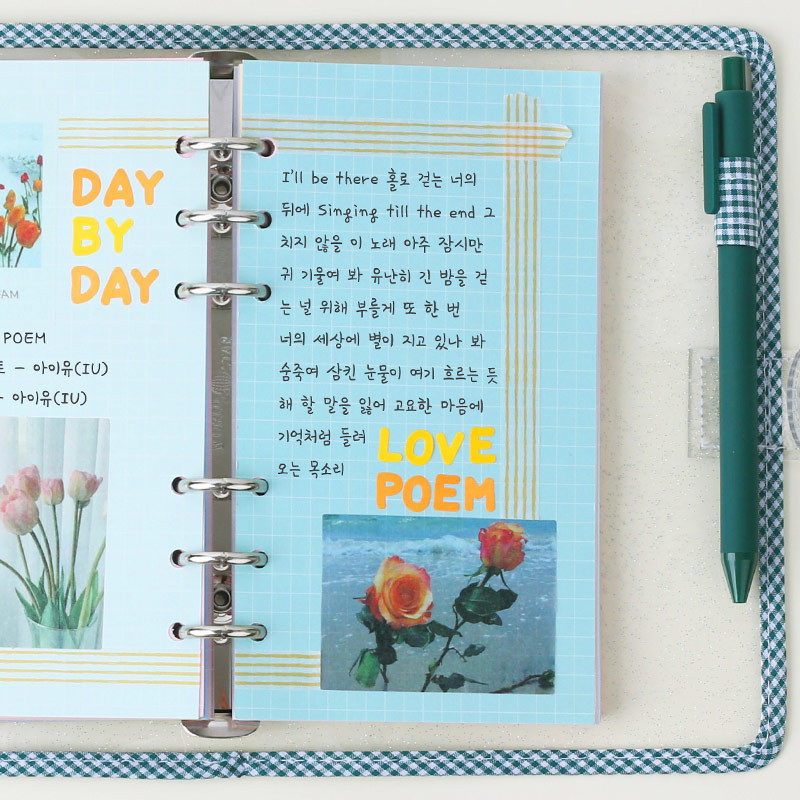 DAY
BY
DAY
AM
POEM
트 - 아이유(IU)
- 아이유(IU)
I'll be there 홀로 걷는 너의
뒤에 Singing till the end 그
치지 않을 이 노래 아주 잠시만
귀 기울여 봐 유난히 긴 밤을 걷
는 널 위해 부를게 또 한 번
너의 세상에 별이 지고 있나 봐
숨죽여 삼킨 눈물이 여기 흐르는 듯
해 할 말을 잃어 고요한 마음에
기억처럼 들려
오는 목소리
LOVE
POEM